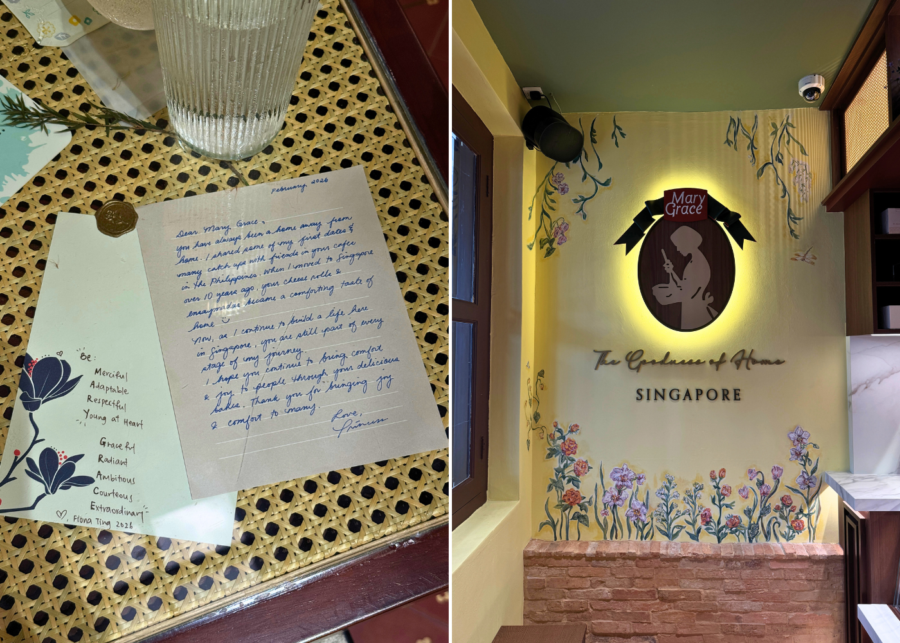 February 2026
Dear Mary Grace,
You have always been a home away from
home. I shared some of my first dates &
many catch ups with friends in your cafes
in the Philippines. When I moved to Singapore
over 10 years ago, your cheese rolls &
ensaymadas became a comforting taste of
home
Now, as I continue to build a life here
in Singapore, you are still part of every
stage of my journey.
I hope you continue to bring comfort
& joy to people through your delicious
bakes. Thank you for bringing joy
& comfort to many.
Love,
Princess
Be:
Merciful
Adaptable
Respectful
Young at Heart
Graceful
Radiant
Ambitious
Courteous
Extraordinary
Fiona Ting 2026
Mary
Grace
The Goodness of Home
SINGAPORE